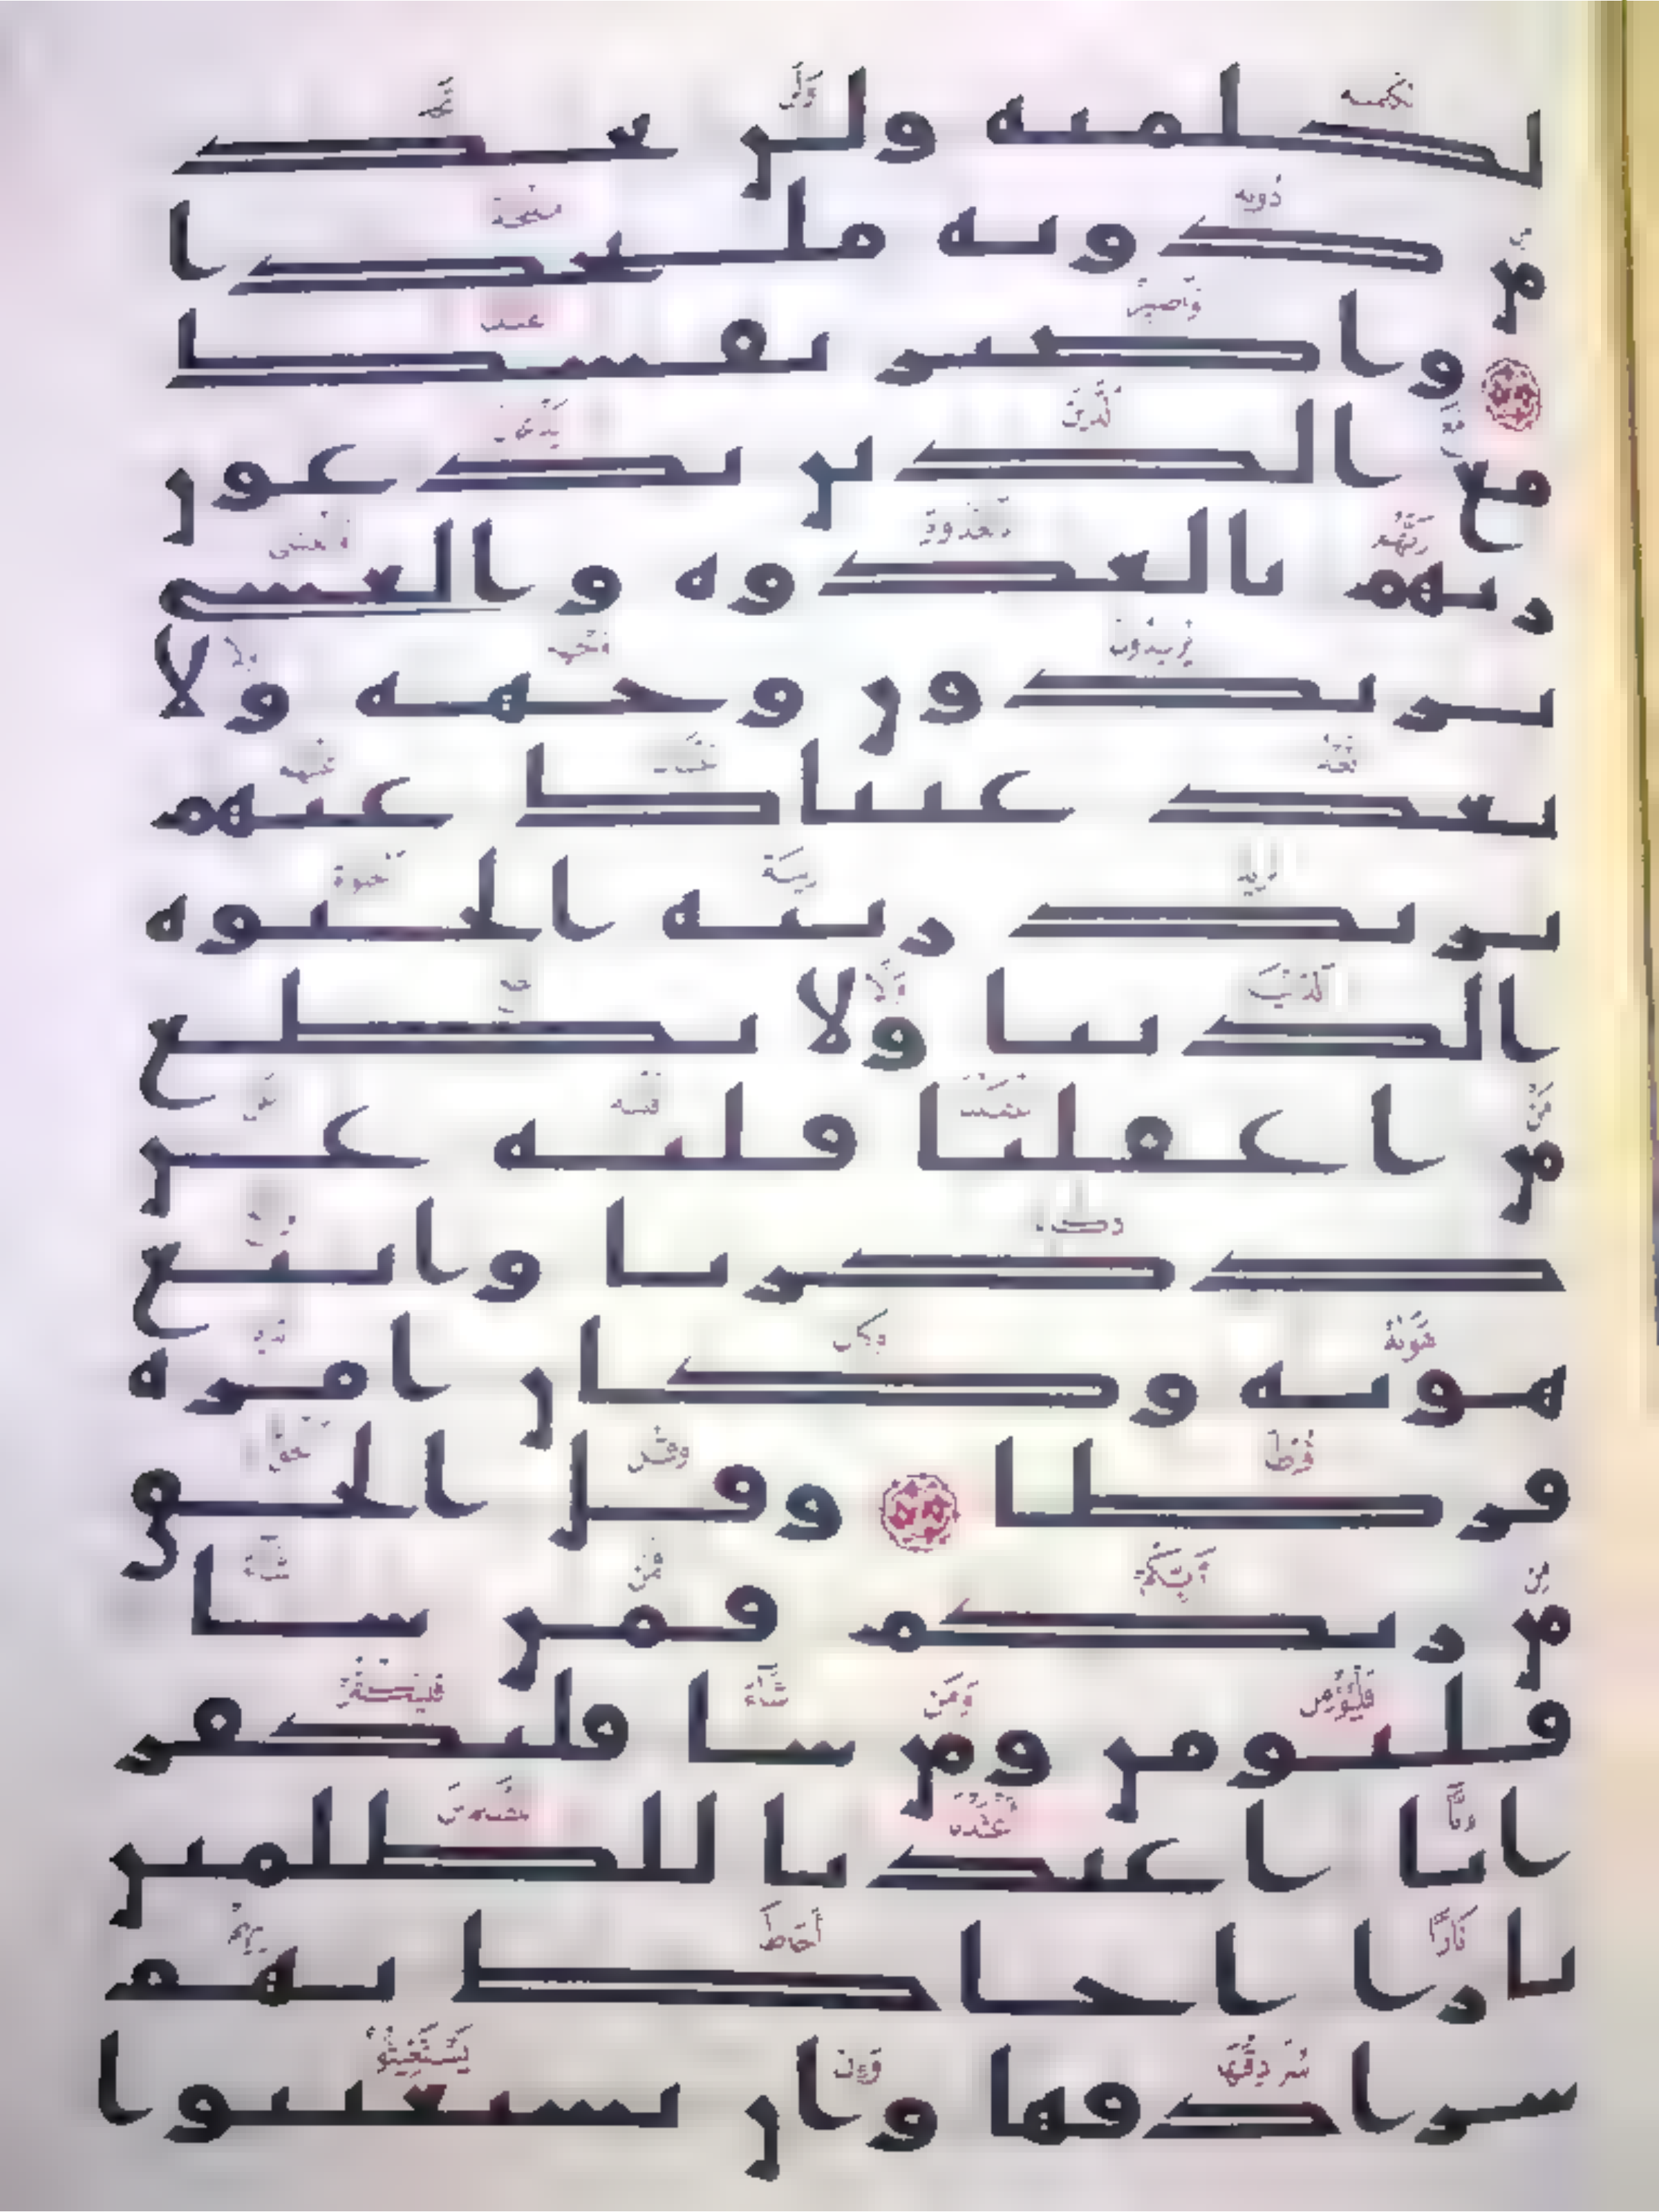 لكلمته ولن تجد
من دونه ملتحدا
واصبر نفسك
مع الذين يدعون
ربهم بالغدوه والعشي
يريدون وجهه ولا
تعد عيناك عنهم
تريد زينه الحيوه
الدنيا ولا تطع
من اغفلنا قلبه عن
ذكرنا واتبع
هويه وكان امره
فرطا وقل الحق
من ربكم فمن شا
فليومن ومن شا فليكفر
انا اعتدنا للظلمين
نارا احاط بهم
سرادقها وان يستغيثوا